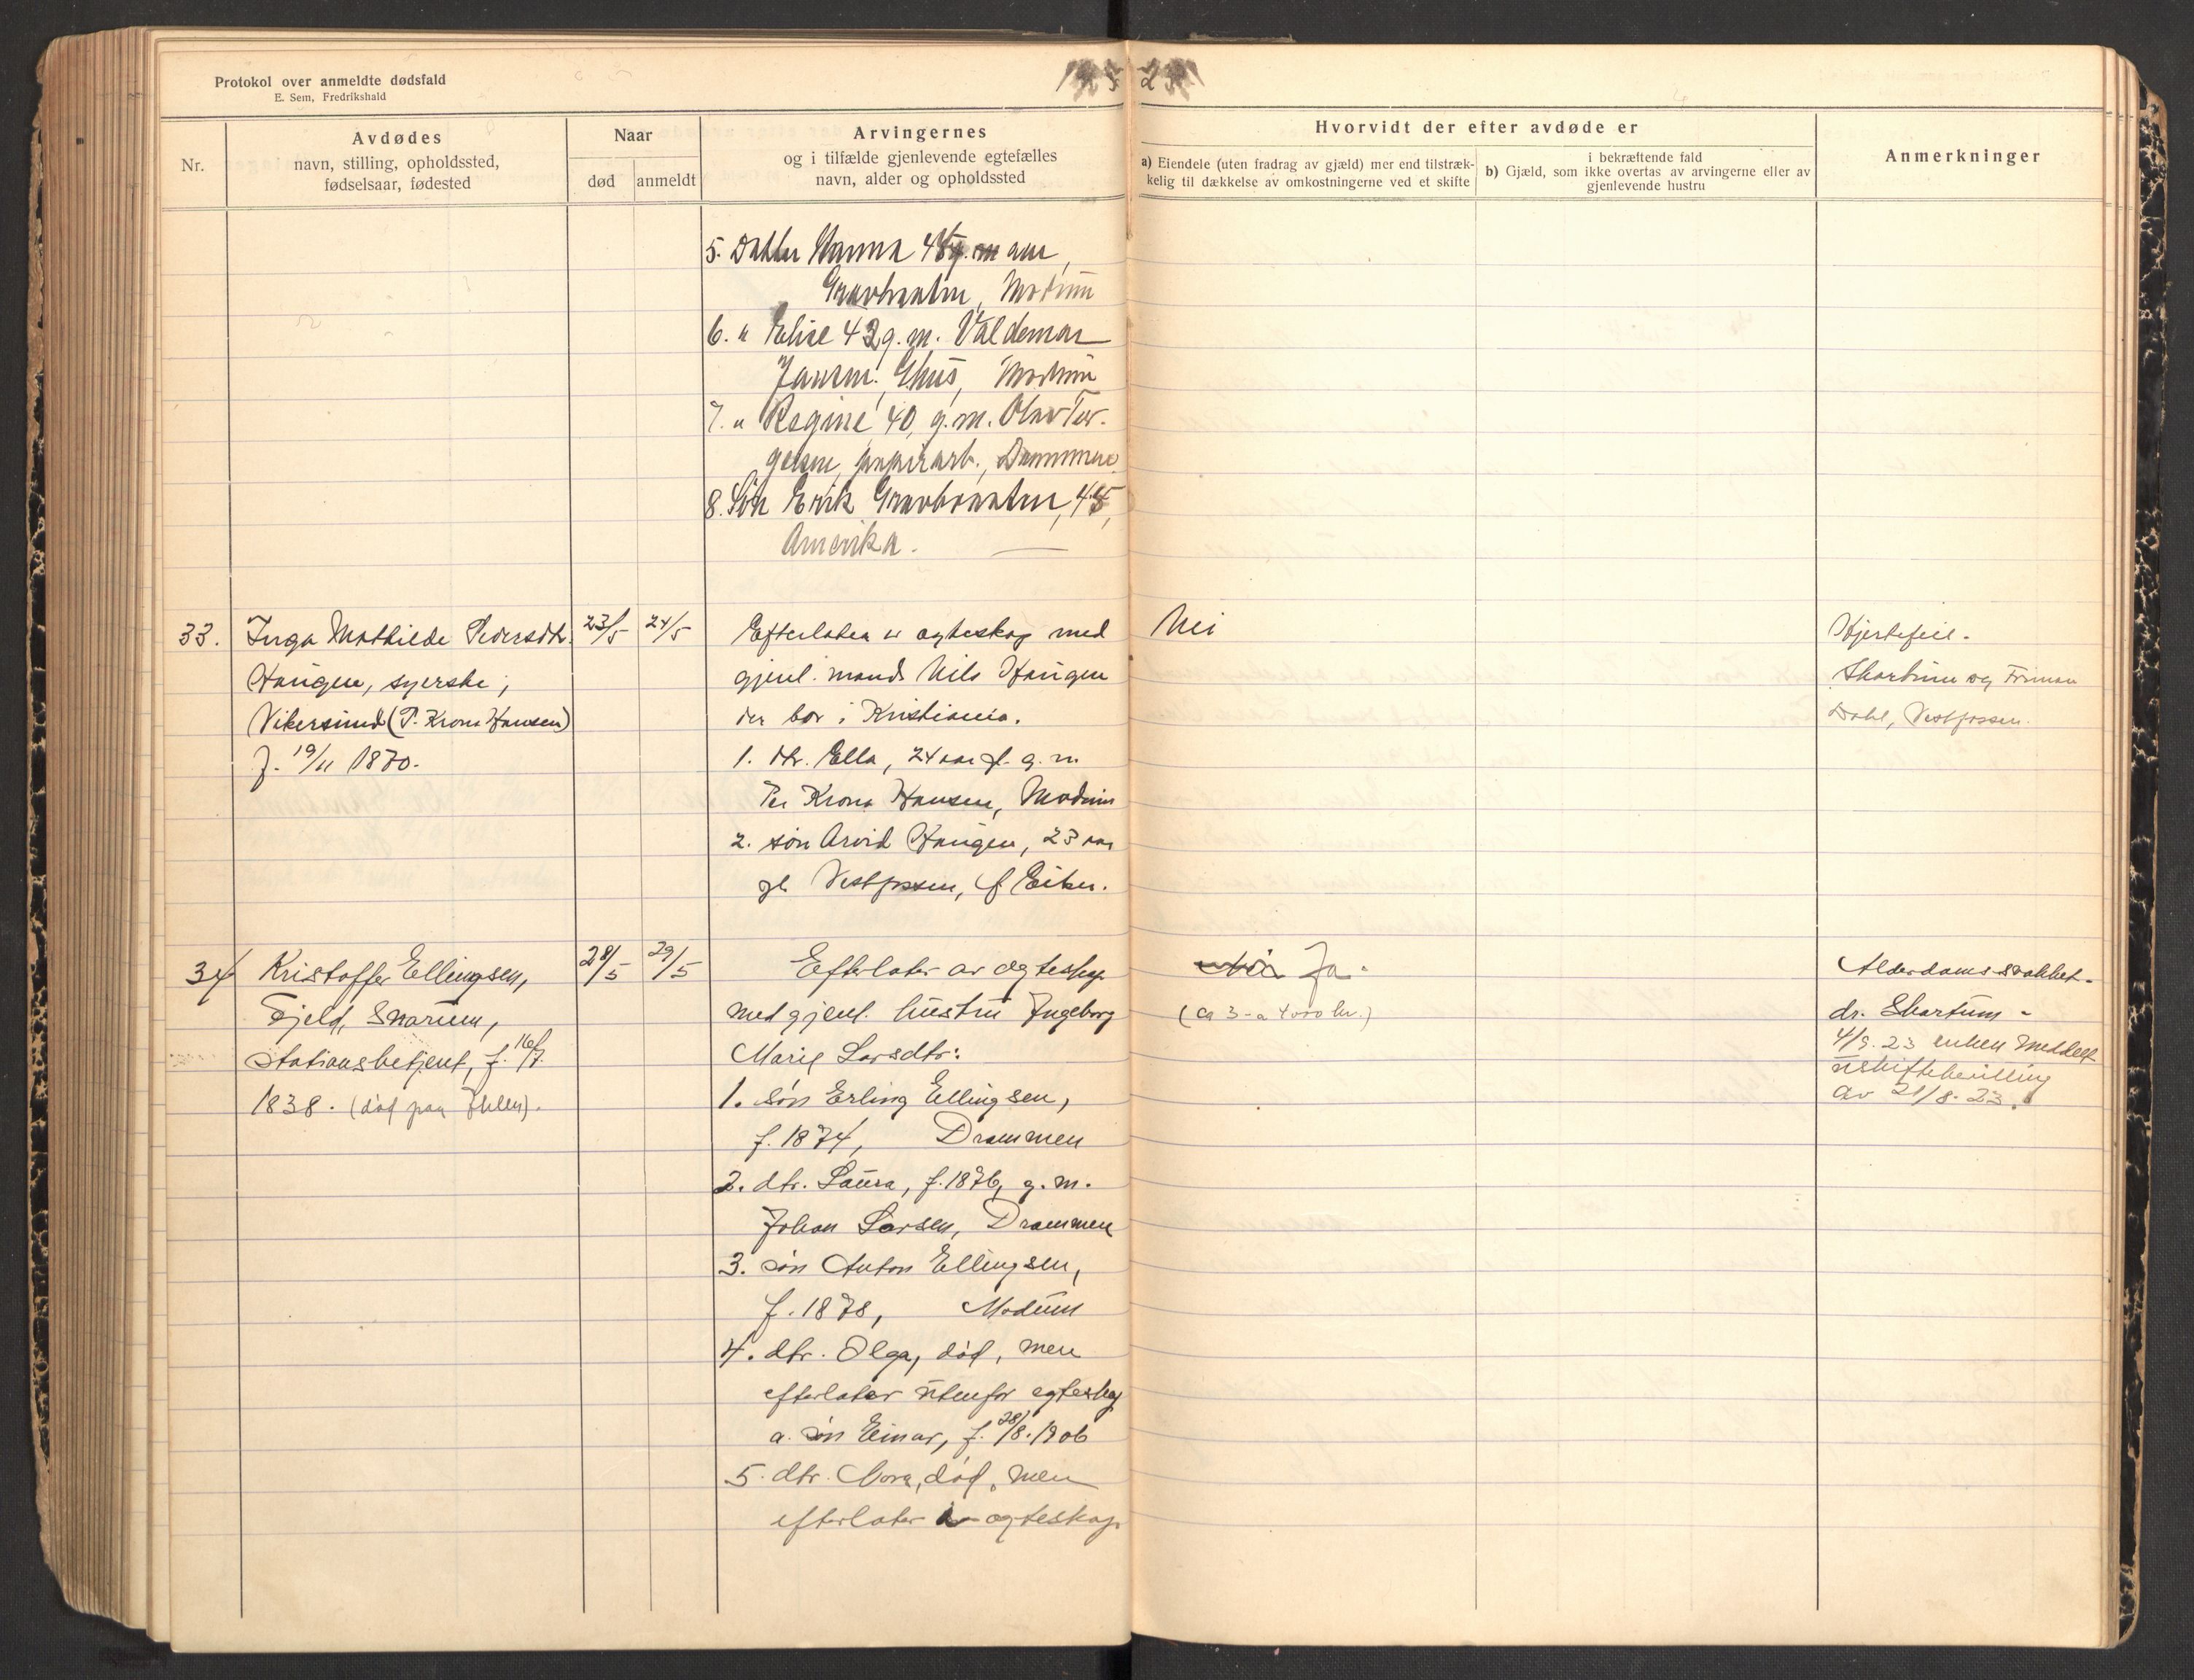 Protokol over anmeldte dødsfald
E. Sem, Fredrikshald
1923
Nr.
Avdødes
navn, stilling, opholdssted,
fødselsaar, fødested
Naar
død
anmeldt
Arvingernes
og i tilfælde gjenlevende egtefælles
navn, alder og opholdssted
Hvorvidt der efter avdøde er
a) Eiendele (uten fradrag av gjæld) mer end tilstræk-
kelig til dækkelse av omkostningerne ved et skifte
i bekræftende fald
b) Gjæld, som ikke overtas av arvingerne eller av
gjenlevende hustru
Anmerkninger
5. Datter Hanna
Gravbraaten, Modum
6. " Elise 42 g. m. Valdemar
Jansen, Modum
7. " Regine 40, g. m. Olav Ter-
gesen, papirarb., Drammen
8. Søn Erik Gravbraaten, 45,
Amerika.
33.
Inga Mathilde Pedersdtr.
Haugen, syerske,
Vikersund (P. Krona Hansen)
f. 19/11 1870.
23/5
24/5
Efterlater i egteskap med
gjenl. mand Nils Haugen
der bor i Kristiania.
1. dtr. Ella, 24 aar g. m.
Per Krona Hansen, Modum
2. søn Arvid Haugen, 23 aar
gl. Vestfossen, Eiker.
Nei
Hjertefeil.
Skartum og
Dahl, Vestfossen.
34
Kristoffer Ellingsen,
Fjeld, Snarum,
stationsbetjent, f. 16/7
1838. (død paa
28/5
29/5
Efterlater av egteskap
med gjenl. hustru Ingeborg
Marie Larsdtr:
1. søn Erling Ellingsen,
f. 1874, Drammen
2. dtr. Laura, f. 1876, g. m.
Johan Larsen, Drammen
3. søn Anton Ellingsen,
f. 1878, Modum
4. dtr. Olga, død, men
efterlater utenfor egteskap
a. søn Einar, f. 28/8. 1906
5. dtr. Nora, død, men
efterlater i egteskap
Nei Ja.
(ca 3 - a 4000 kr.)
Alderdomssvakhet.
dr. Skartum -
4/9. 23 enken meddelt
uskiftebevilling
av 21/8. 23.